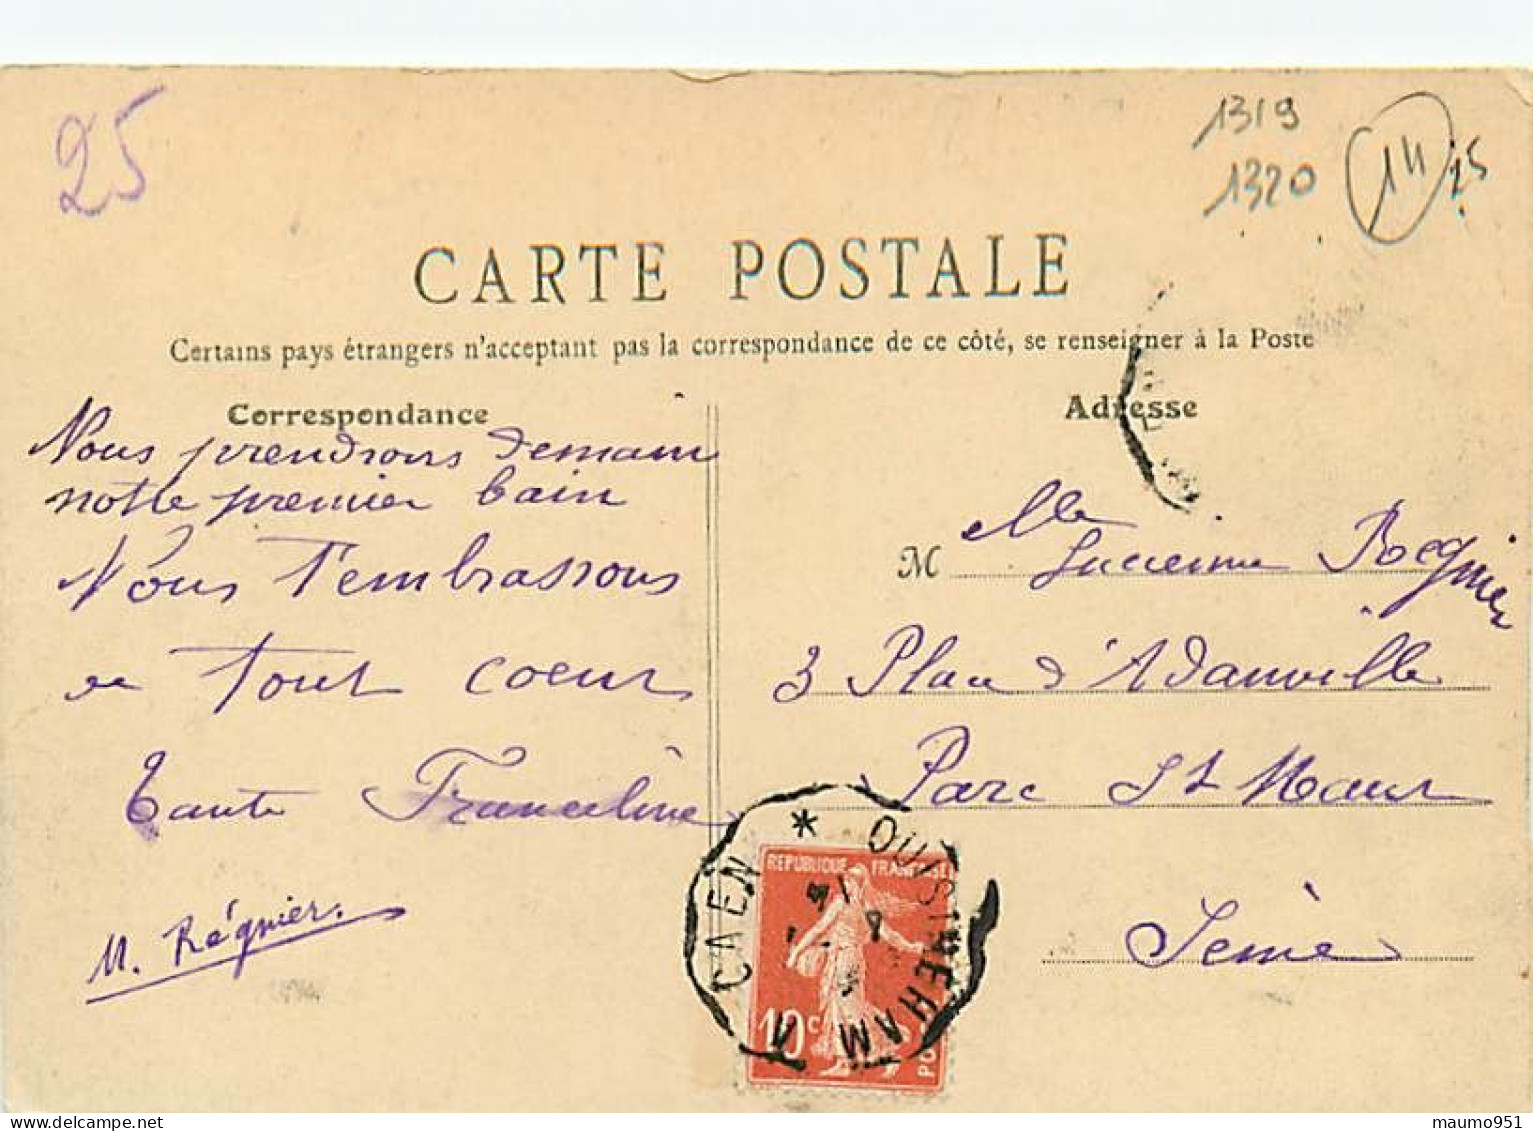 25
1319
1320
14
25
CARTE POSTALE
Certains pays étrangers n'acceptant pas la correspondance de ce côté, se renseigner à la Poste
Correspondance
Nous prendrons demain
notre premier bain
Nous t'embrassons
de tout coeur
Tante Franceline
M. Régnier.
Adresse
M Mlle Lucienne Regnier
3 Place d'Adanville
Parc St Maur
Seine
CAEN * OUISTREHAM
REPUBLIQUE FRANÇAISE
10c
PO
maumo951